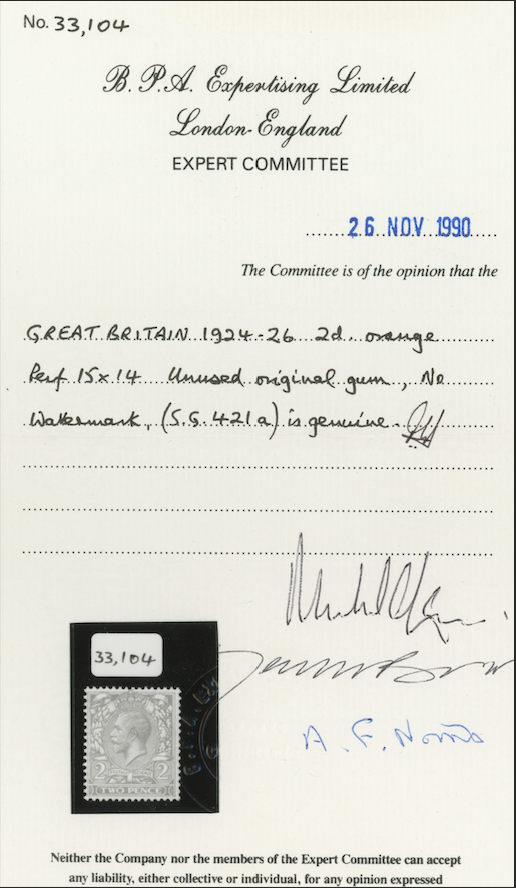 No. 33,104
B. P. A. Expertising Limited
London-England
EXPERT COMMITTEE
26 NOV 1990
The Committee is of the opinion that the
GREAT BRITAIN 1924-26 2d. orange
Perf 15x14 Unused original gum, No
Watermark, (S.G. 421a) is genuine.
33,104
A. F. Norris
2 2
TWO PENCE
Neither the Company nor the members of the Expert Committee can accept
any liability, either collective or individual, for any opinion expressed